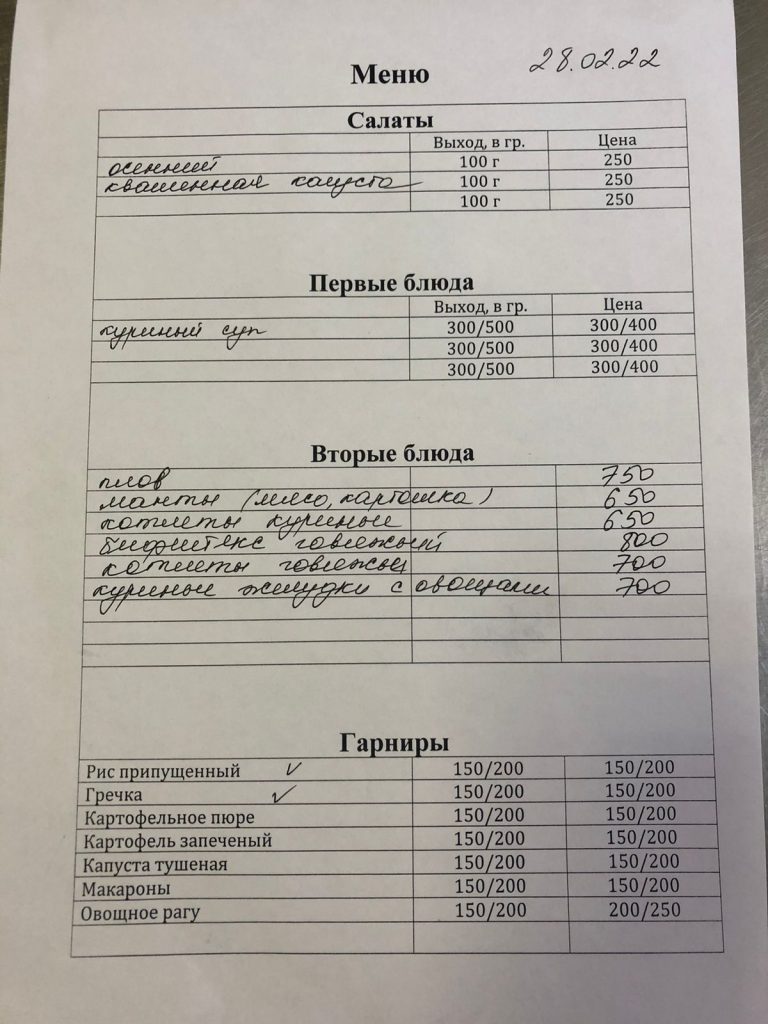 28.02.22
Меню
Салаты
Выход, в гр. Цена
осенний 100 г 250
квашенная капуста 100 г 250
100 г 250
Первые блюда
Выход, в гр. Цена
куриный суп 300/500 300/400
300/500 300/400
300/500 300/400
Вторые блюда
плов 750
манты (мясо, картошка) 650
котлеты куриные 650
бифштекс говяжий 800
котлеты говяжьи 700
куриные желудки с овощами 700
Гарниры
Рис припущенный ✓ 150/200 150/200
Гречка ✓ 150/200 150/200
Картофельное пюре 150/200 150/200
Картофель запеченый 150/200 150/200
Капуста тушеная 150/200 150/200
Макароны 150/200 150/200
Овощное рагу 150/200 200/250